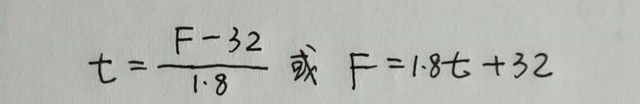 t = \frac{F-32}{1.8} 或 F = 1.8t + 32